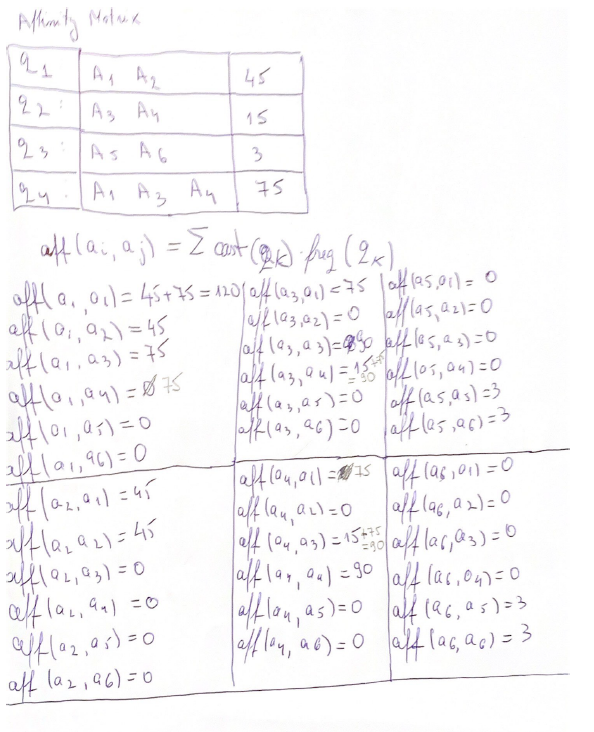 Affinity Matrix
q1 A1 A2 45
q2: A3 A4 15
q3: A5 A6 3
q4: A1 A3 A4 75
aff(ai, aj) = Σ cost(qk) · freq(qk)
aff(a1, a1) = 45+75 = 120
aff(a1, a2) = 45
aff(a1, a3) = 75
aff(a1, a4) = 75
aff(a1, a5) = 0
aff(a1, a6) = 0
aff(a3, a1) = 75
aff(a3, a2) = 0
aff(a3, a3) = 90
aff(a3, a4) = 15+75
= 90
aff(a3, a5) = 0
aff(a3, a6) = 0
aff(a5, a1) = 0
aff(a5, a2) = 0
aff(a5, a3) = 0
aff(a5, a4) = 0
aff(a5, a5) = 3
aff(a5, a6) = 3
aff(a2, a1) = 45
aff(a2 a2) = 45
aff(a2, a3) = 0
aff(a2, a4) = 0
aff(a2, a5) = 0
aff(a2, a6) = 0
aff(a4, a1) = 75
aff(a4, a2) = 0
aff(a4, a3) = 15+75
= 90
aff(a4, a4) = 90
aff(a4, a5) = 0
aff(a4, a6) = 0
aff(a6, a1) = 0
aff(a6, a2) = 0
aff(a6, a3) = 0
aff(a6, a4) = 0
aff(a6, a5) = 3
aff(a6, a6) = 3